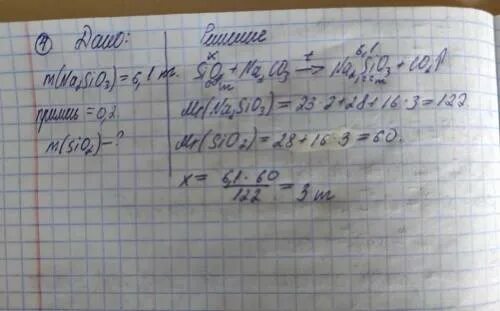 ④ Дано:
Решение
m(Na₂SiO₃)=6,1 т.
примесь = 0,2
m(SiO₂) – ?
x 6,1
SiO₂ + Na₂CO₃ →t Na₂SiO₃ + CO₂↑
Mr(Na₂SiO₃) = 23·2+28+16·3=122
Mr(SiO₂) = 28+16·3=60.
x = 6,1·60 / 122 = 3 т